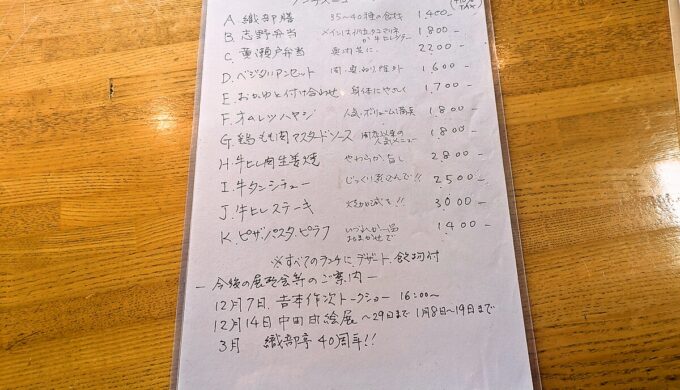 (+10% TAX)
A. 織部膳 35〜40種の食材 1,400-
B. 志野弁当 1800-
C. 黄瀬戸弁当 2200-
D. ベジタリアンセット 肉・魚 除外 1,600-
E. おかゆと付け合わせ 身体にやさしく 1,700-
F. オムレツハヤシ 人気・ボリューム満点 1,800-
G. 鶏もも肉マスタードソース 開店以来の人気メニュー 1,800-
H. 牛ヒレ肉生姜焼 やわらか 2800-
I. 牛タンシチュー じっくり煮込んで!! 2500-
J. 牛ヒレステーキ 焼加減を!! 3000-
K. ピザ.パスタ.ピラフ いづれか一品おまかせで 1400-
※すべてのランチに デザート、飲物付
— 今後の展覧会等のご案内 —
12月7日、吉本作次トークショー 16:00〜
12月14日 中町 絵展 〜29日まで 1月8日〜19日まで
3月 織部亭 40周年!!